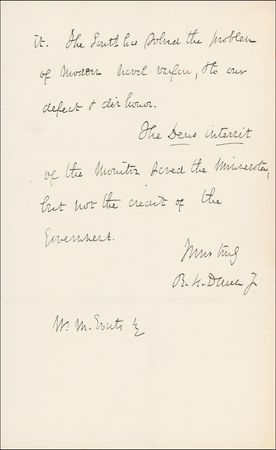 it. The South has solved the problem
of modern naval warfare, to our
defeat & dishonor.
The Deus intersit
of the Monitor saved the Minnesota,
but not the credit of the
Government.
Yours truly
R. H. Dana Jr
W. M. Evarts Esq